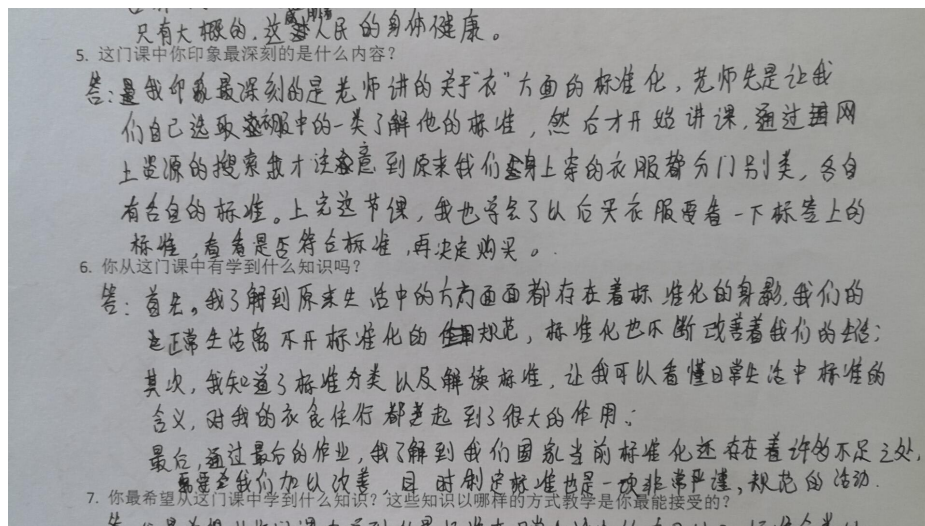 只有大概的,这威胁人民的身体健康。
5. 这门课中你印象最深刻的是什么内容?
答:我印象最深刻的是老师讲的关于“衣”方面的标准化,老师先是让我
们自己选取衣服中的一类了解他的标准,然后才开始讲课,通过网
上资源的搜索我才注意到原来我们身上穿的衣服都分门别类,各自
有各自的标准。上完这节课,我也学会了以后买衣服要看一下标签上的
标准,看看是否符合标准,再决定购买。
6. 你从这门课中有学到什么知识吗?
答:首先。我了解到原来生活中的方方面面都存在着标准化的身影,我们的
正常生活离不开标准化的规范,标准化也不断改善着我们的生活;
其次,我知道了标准分类以及解读标准,让我可以看懂日常生活中标准的
含义,对我的衣食住行都起到了很大的作用;
最后,通过最后的作业,我了解到我们国家当前标准化还存在着许多不足之处,
需要我们加以改善,同时制定标准也是一项非常严谨,规范的活动.
7. 你最希望从这门课中学到什么知识?这些知识以哪样的方式教学是你最能接受的?